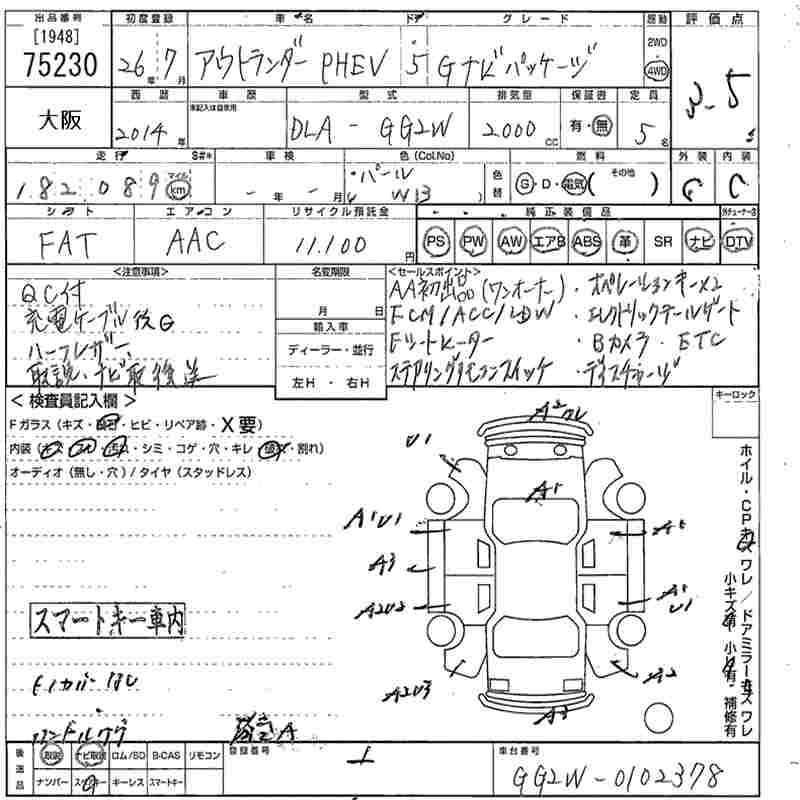 出品番号 初度登録 車名 ドア グレード 駆動 評価点
[1948]
75230
26年 7月
アウトランダー PHEV 5 Gナビパッケージ
2WD
4WD
3.5
大阪
西暦 車歴 型式 排気量 保証書 定員
未記入は自家用
2014年
DLA - GG2W
2000cc
有・無
5名
走行 S#* 車検 色(Col.No) 燃料 外装 内装
182,089 マイル km
年 月
パール
W13
色替
G・D・電気( その他 )
C C
シフト エアコン リサイクル預託金 純正装備品
FAT AAC 11,100円
PS PW AW エアB ABS 革 SR ナビ DTV
<注意事項> 名変期限 <セールスポイント>
QC付
充電ケーブル後日
ハーフレザー
取説・ナビ取後送
月 日
輸入車
ディーラー・並行
左H ・ 右H
AA初出品(ワンオーナー)・オペレーションキー×2
FCM/ACC/LDW ・エレクトリックテールゲート
Fシートヒーター ・Bカメラ・ETC
ステアリングリモコンスイッチ ・ディスチャージ
< 検査員記入欄 >
キーロック
Fガラス(キズ・飛石・ヒビ・リペア跡・X要)
内装(キズ・スレ・汚れ・シミ・コゲ・穴・キレ・破れ・割れ)
オーディオ(無し・穴)/タイヤ(スタッドレス)
A2 ワレ
U1
A1
A1U1
A1
A3
A2U2
A1
U1
A2U3
A2
A3
ホイル・CPキズ ワレ/ドアミラーキズ ワレ
小キズ有・小凹有・補修有
スマートキー車内
トノカバーなし
ハンドルスレ
後送品
取説 ナビ取説 ロム/SD B-CAS リモコン
ナンバー スペアキー キーレス スマートキー
登録番号
車台番号
GG2W-0102378